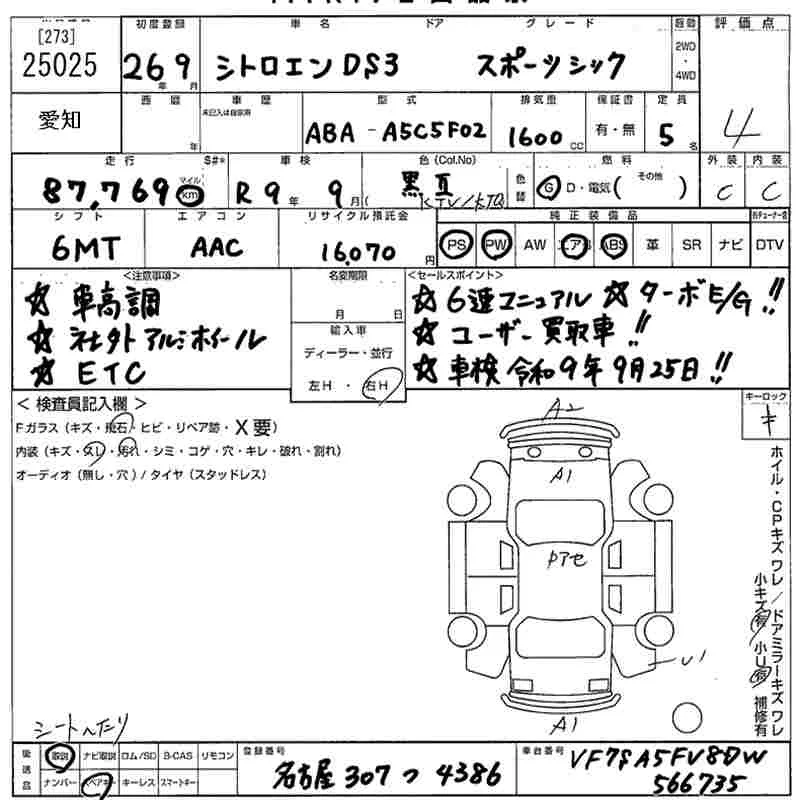 初度登録 車名 ドア グレード 駆動 評価点
[273]
25025 26 9 シトロエン DS3 スポーツシック 2WD・4WD
年 月
4
愛知 西暦 車歴 型式 排気量 保証書 定員
未記入は自家用
年 ABA - A5C5F02 1600 CC 有・無 5 名
走行 S#* 車検 色(Col.No) 燃料 外装 内装
87,769 マイル km R 9 年 9 月 黒 色替 G D・電気( その他 ) C C
シフト エアコン リサイクル預託金 純正装備品
6MT AAC 16,070 円 PS PW AW エアB ABS 革 SR ナビ DTV
<注意事項> 名変期限 <セールスポイント>
☆ 車高調 月 日 ☆ 6速マニュアル ☆ ターボE/G!!
☆ 社外アルミホイール 輸入車 ☆ ユーザー買取車!!
☆ ETC ディーラー・並行 ☆ 車検 令和9年9月25日!!
左H・右H
<検査員記入欄> キーロック
Fガラス(キズ・飛石・ヒビ・リペア跡・X要) キ
内装(キズ・スレ・汚れ・シミ・コゲ・穴・キレ・破れ・割れ)
オーディオ(無し・穴)/タイヤ(スタッドレス)
A2
A1
Pアセ
U1
A1
ホイル・CPキズワレ/ドアミラーキズワレ
小キズ有 小U有 補修有
シートへたり
後送品 取説 ナビ取説 ロム/SD B-CAS リモコン 登録番号 車台番号
ナンバー スペアキー キーレス スマートキー 名古屋 307 つ 4386 VF7SA5FV8DW
566735